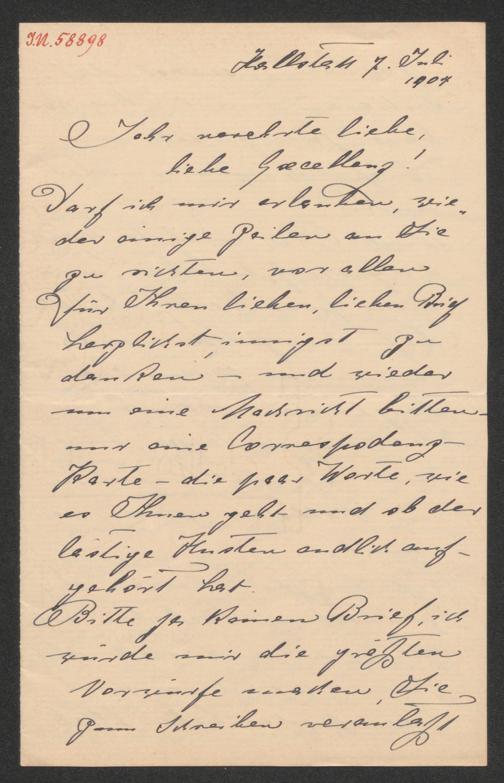 I.N. 58898
Hallstatt 7. Juli
1907
Sehr verehrte liebe,
liebe Excellenz!
Darf ich mir erlauben, wie„
der einige Zeilen an Sie
zu richten, vor allen
für Ihren lieben, lieben Brief
herzlichst, innigst zu
danken – und wieder
um eine Nachricht bitten–
nur eine Correspodenz–
Karte – die paar Worte, wie
es Ihnen geht und ob der
lästige Husten endlich auf–
gehört hat.
Bitte ja keinen Brief, ich
würde mir die größten
Vorwürfe machen, Sie
zum Schreiben veranlaßt